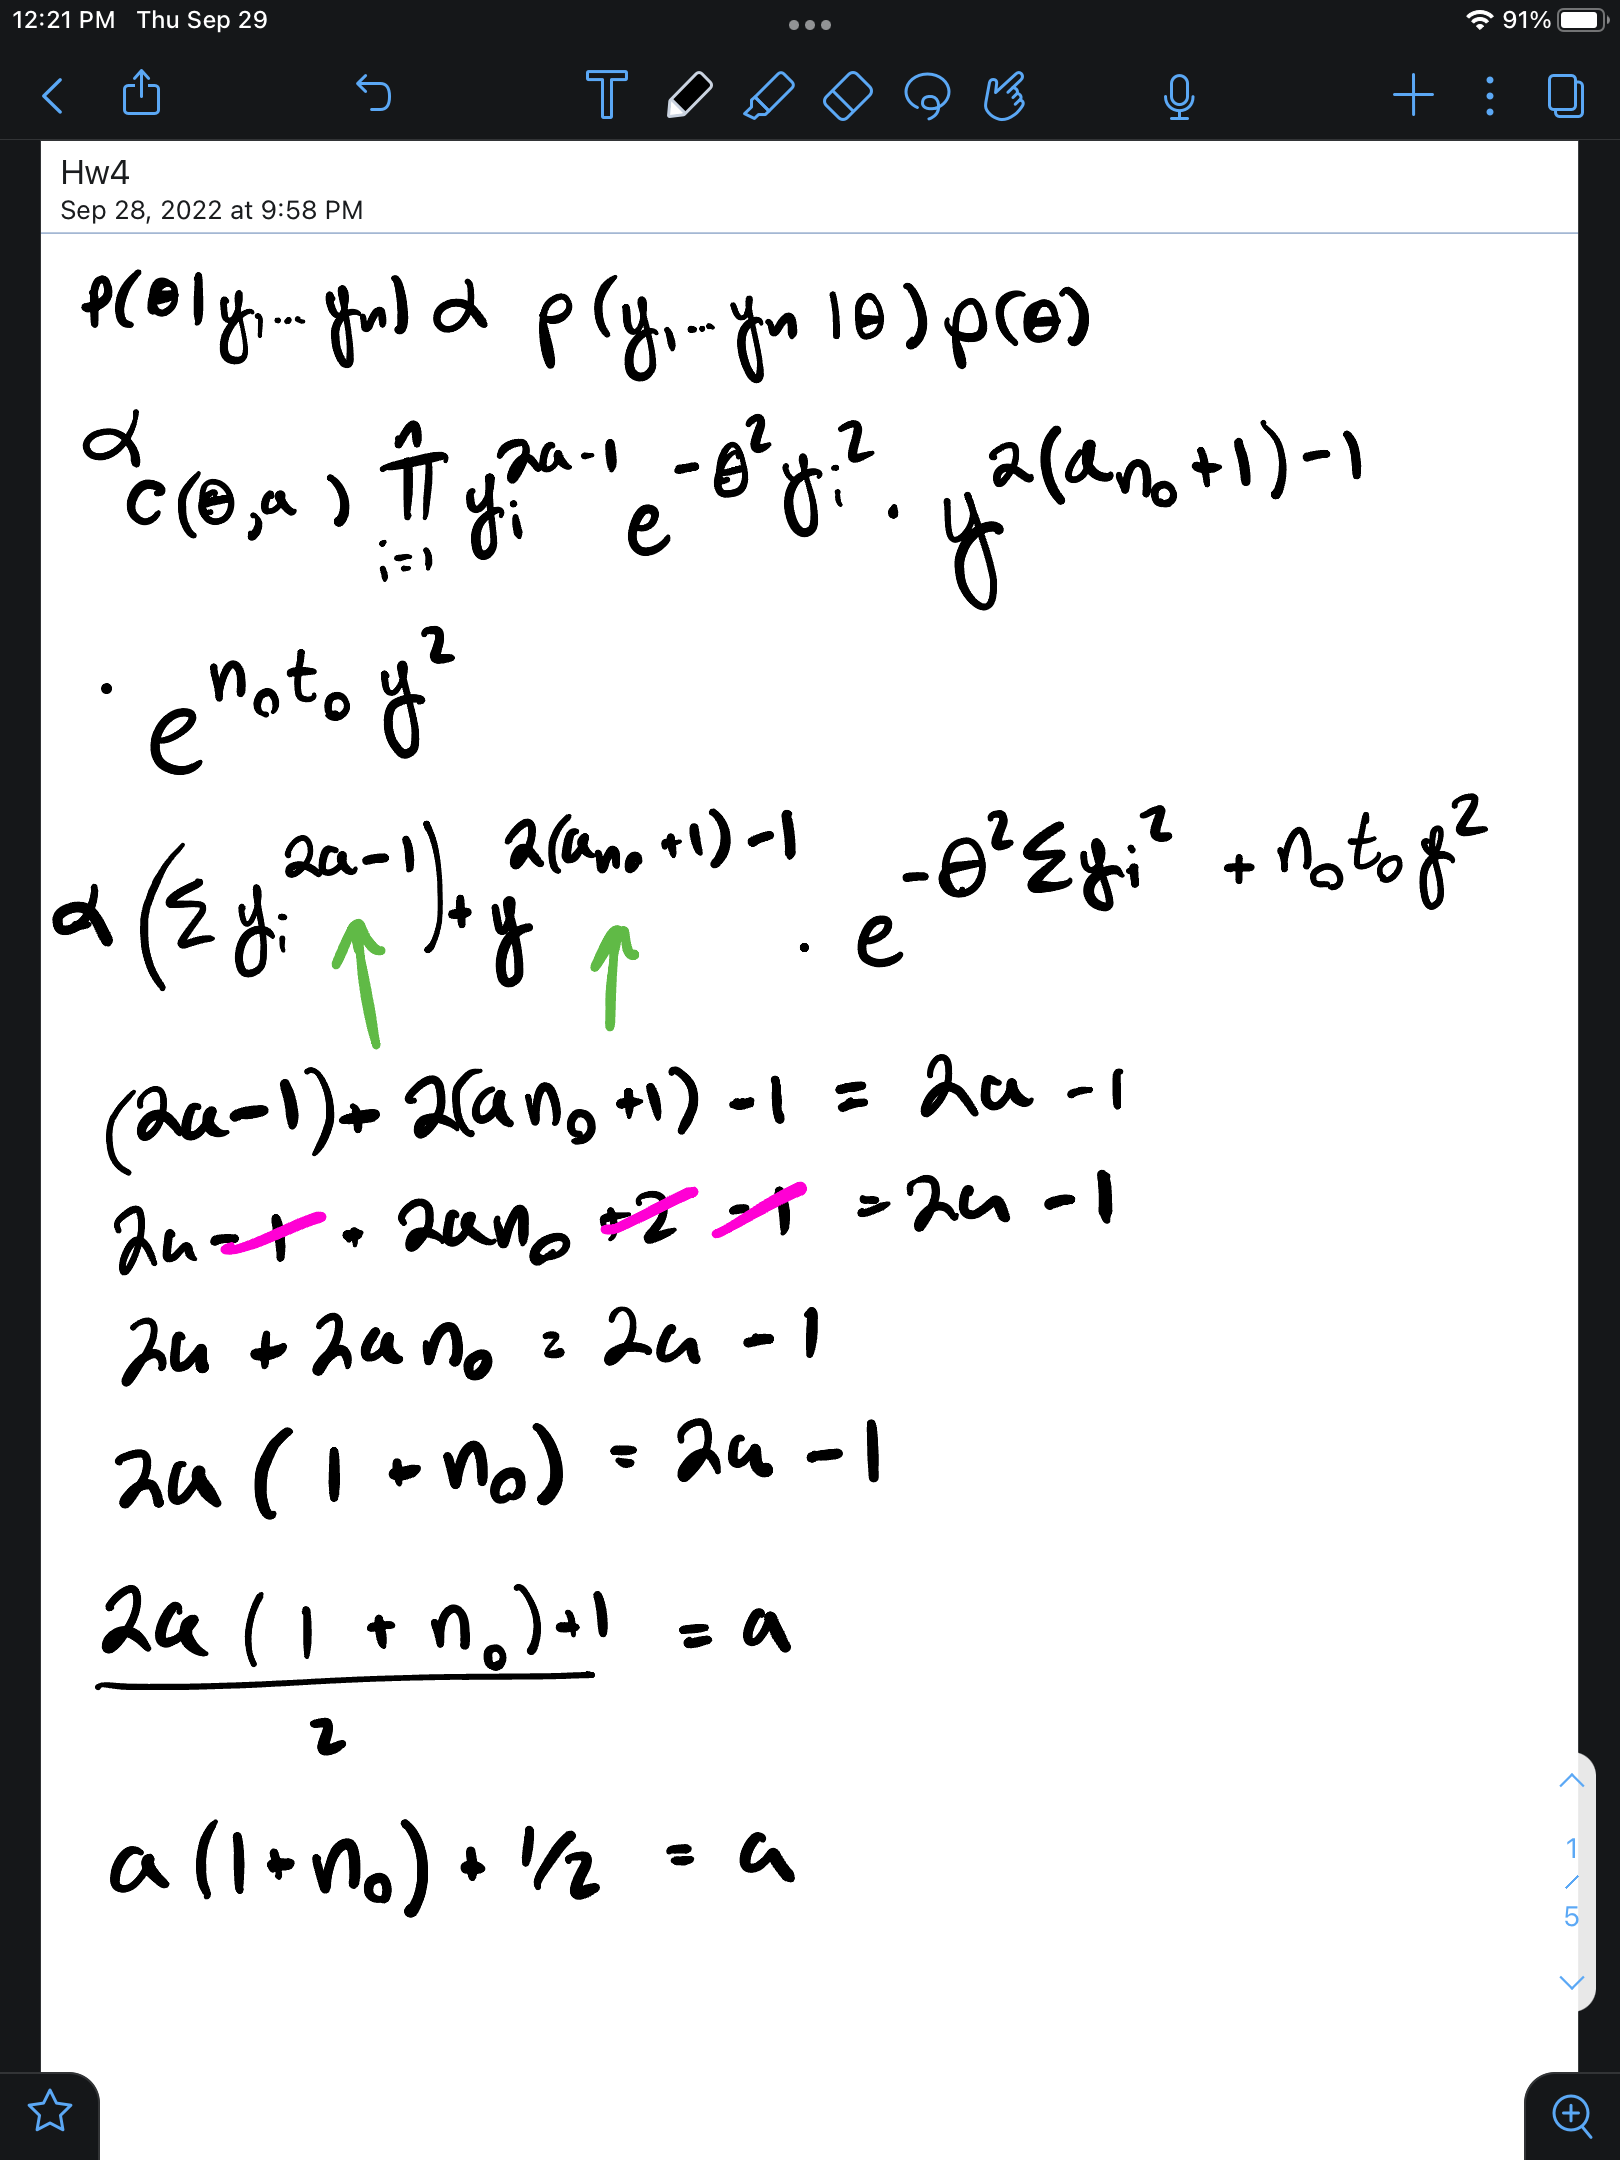 12:21 PM Thu Sep 29 91%
Hw4
Sep 28, 2022 at 9:58 PM
p(θ|y₁...yₙ) α p(y₁...yₙ|θ)p(θ)
α c(θ,a) ∏ⁿᵢ₌₁ yᵢ^{2a-1} e^{-θ²yᵢ²} · y^{2(an₀+1)-1}
· e^{n₀t₀y²}
α (Σyᵢ^{2a-1}) + y^{2(an₀+1)-1} · e^{-θ²Σyᵢ² + n₀t₀y²}
(2a-1)+ 2(an₀+1)-1 = 2a-1
2a-1 + 2an₀+2-1 = 2a-1
2a + 2an₀ = 2a-1
2a(1+n₀) = 2a-1
2a(1+n₀)+1 = a
2
a(1+n₀)+1/2 = a
1
/
5